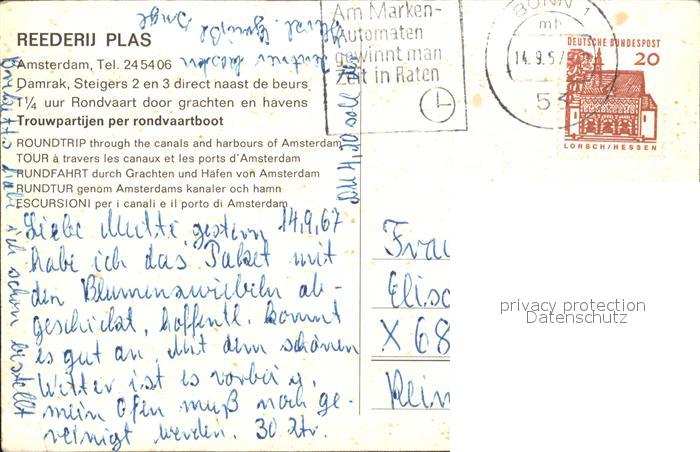 REEDERIJ PLAS
Amsterdam, Tel. 245406
Damrak, Steigers 2 en 3 direct naast de beurs
1¼ uur Rondvaart door grachten en havens
Trouwpartijen per rondvaartboot
ROUNDTRIP through the canals and harbours of Amsterdam
TOUR à travers les canaux et les ports d'Amsterdam
RUNDFAHRT durch Grachten und Häfen von Amsterdam
RUNDTUR genom Amsterdams kanaler och hamn
ESCURSIONI per i canali e il porto di Amsterdam
14.9.67
Liebe Mutti, gestern
habe ich das Paket mit
den Blumenzwiebeln ab-
geschickt, hoffentl. kommt
es gut an. Mit dem schönen
Wetter ist es vorbei,
mein Ofen muß noch ge-
reinigt werden. 30 Ztr.
Briketts habe ich schon bestellt
und
Herzl. Grüße Inge
Am Marken-
Automaten
gewinnt man
Zeit in Raten
BONN 1
mh
14.9.67
53
DEUTSCHE BUNDESPOST
20
LORSCH/HESSEN
Frau
X 68
privacy protection
Datenschutz